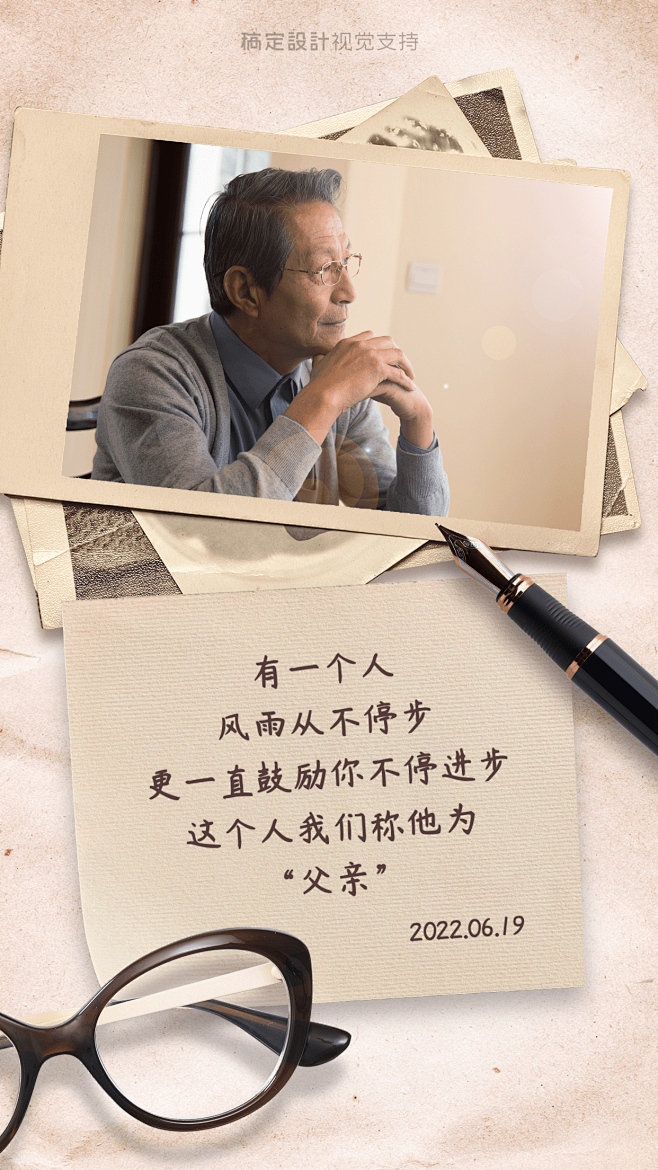 稿定設計视觉支持
有一个人
风雨从不停步
更一直鼓励你不停进步
这个人我们称他为
“父亲”
2022.06.19